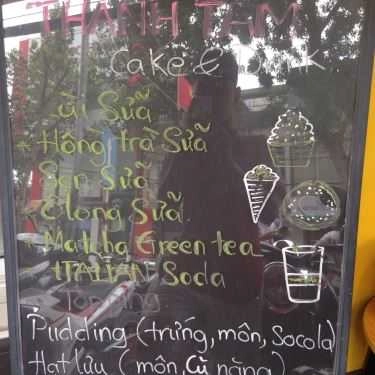 THANH TÂM
Cake & Drink
Sữa
* Hồng trà Sữa
Sen Sữa
* Olong Sữa
* Matcha Green tea
* ITALIAN Soda
Topping
Pudding (trứng, môn, Socola)
Hạt lựu (môn, củ năng)